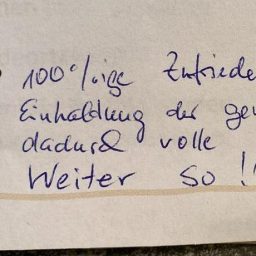 100%ige Zufriede
Einhaldung der gew
dadurch volle
Weiter so !!